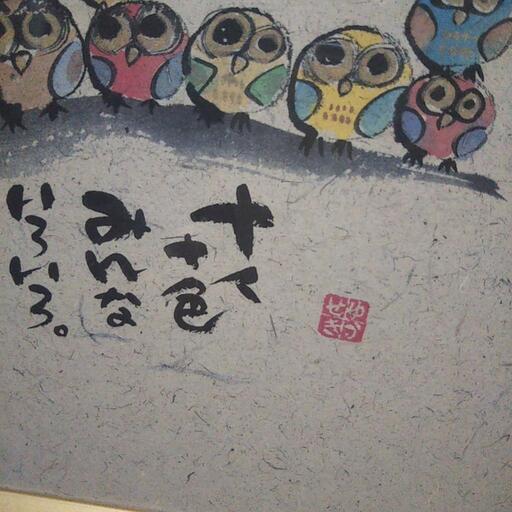 十人
十色
みんな
いろいろ。